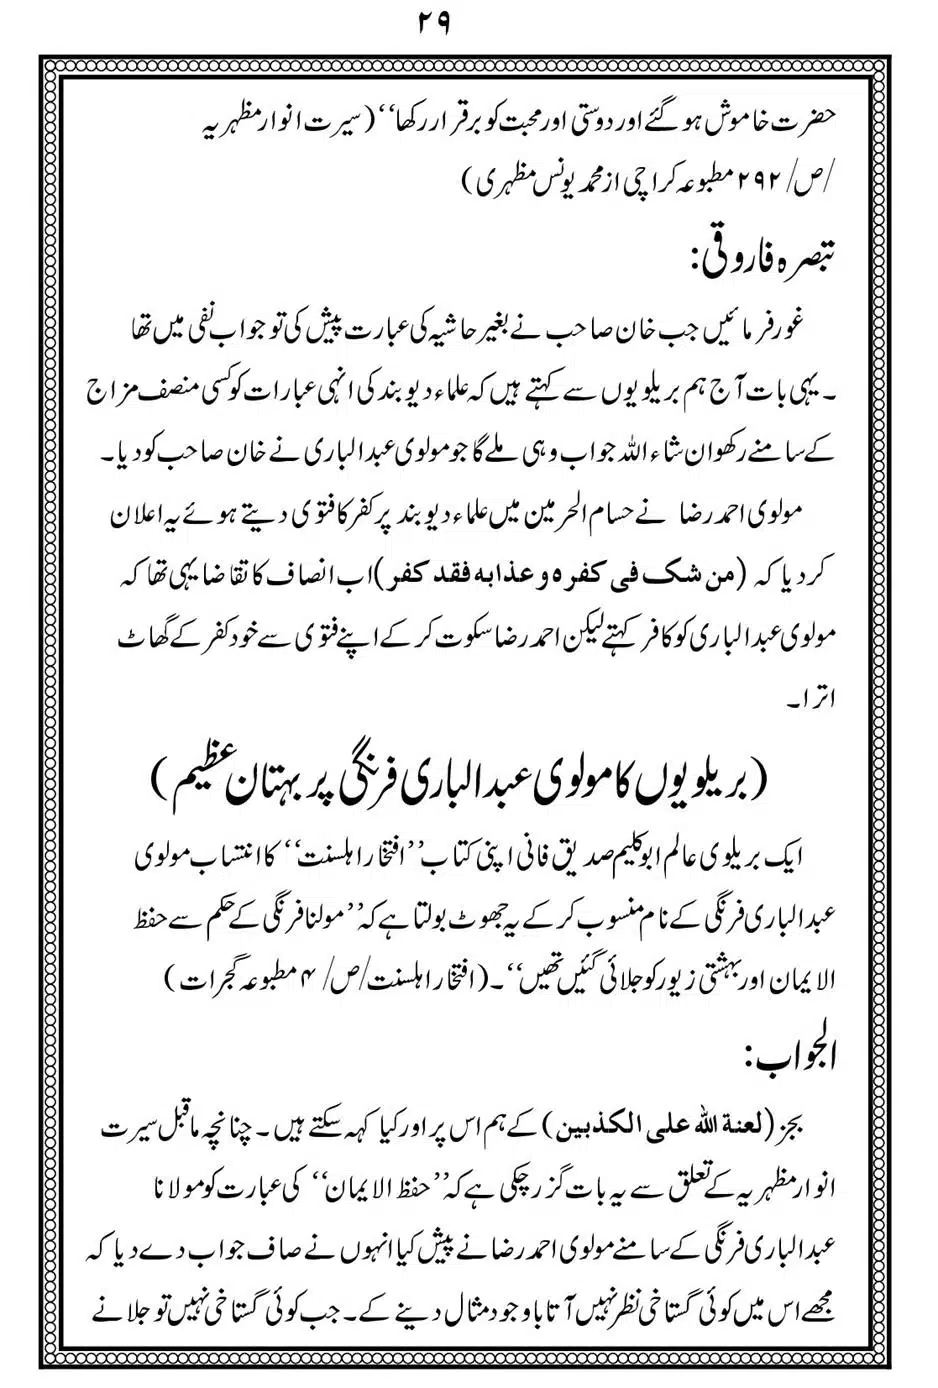 ۲۹
حضرت خاموش ہوگئے اور دوستی اور محبت کو برقرار رکھا‘‘ (سیرت انوار مظہریہ
/ص/ ۲۹۲ مطبوعہ کراچی از محمد یونس مظہری)
تبصرہ فاروقی:
غور فرمائیں جب خان صاحب نے بغیر حاشیہ کی عبارت پیش کی تو جواب نفی میں تھا
۔ یہی بات آج ہم بریلویوں سے کہتے ہیں کہ علماء دیوبند کی انہی عبارات کو کسی منصف مزاج
کے سامنے رکھو ان شاء اللہ جواب وہی ملے گا جو مولوی عبدالباری نے خان صاحب کو دیا۔
مولوی احمد رضا نے حسام الحرمین میں علماء دیوبند پر کفر کا فتوی دیتے ہوئے یہ اعلان
کردیا کہ (من شک فی کفرہ و عذابہ فقد کفر) اب انصاف کا تقاضا یہی تھا کہ
مولوی عبدالباری کو کافر کہتے لیکن احمد رضا سکوت کر کے اپنے فتوی سے خود کفر کے گھاٹ
اترا۔
(بریلویوں کا مولوی عبدالباری فرنگی پر بہتان عظیم)
ایک بریلوی عالم ابوکلیم صدیق فانی اپنی کتاب ’’افتخار اہلسنت‘‘ کا انتساب مولوی
عبدالباری فرنگی کے نام منسوب کر کے یہ جھوٹ بولتا ہے کہ ’’مولنا فرنگی کے حکم سے حفظ
الایمان اور بہشتی زیور کو جلائی گئیں تھیں‘‘۔ (افتخار اہلسنت/ص/ ۴ مطبوعہ گجرات)
الجواب:
بجز (لعنة الله على الكذبين) کے ہم اس پر اور کیا کہہ سکتے ہیں۔ چنانچہ ماقبل سیرت
انوار مظہریہ کے تعلق سے یہ بات گزر چکی ہے کہ ’’حفظ الایمان‘‘ کی عبارت کو مولانا
عبدالباری فرنگی کے سامنے مولوی احمد رضا نے پیش کیا انہوں نے صاف جواب دے دیا کہ
مجھے اس میں کوئی گستاخی نظر نہیں آتا باوجود مثال دینے کے۔ جب کوئی گستاخی نہیں تو جلانے